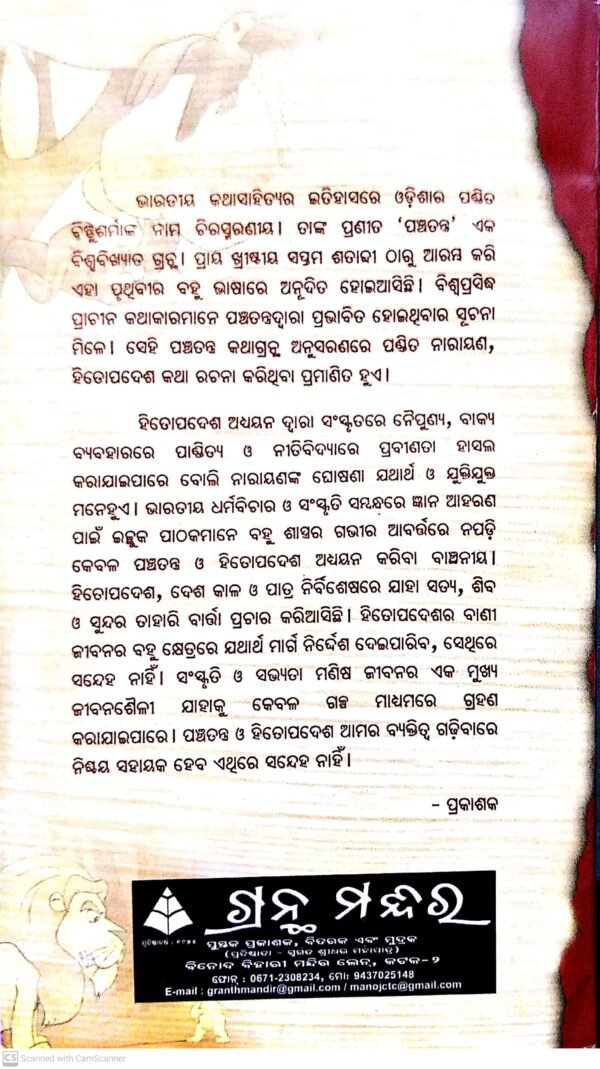 ଭାରତୀୟ କଥାସାହିତ୍ୟର ଇତିହାସରେ ଓଡ଼ିଶାର ପଣ୍ଡିତ
ବିଷ୍ଣୁଶର୍ମାଙ୍କ ନାମ ଚିରସ୍ମରଣୀୟ। ତାଙ୍କ ପ୍ରଣୀତ ‘ପଞ୍ଚତନ୍ତ୍ର’ ଏକ
ବିଶ୍ୱବିଖ୍ୟାତ ଗ୍ରନ୍ଥ। ପ୍ରାୟ ଖ୍ରୀଷ୍ଟୀୟ ସପ୍ତମ ଶତାବ୍ଦୀ ଠାରୁ ଆରମ୍ଭ କରି
ଏହା ପୃଥିବୀର ବହୁ ଭାଷାରେ ଅନୂଦିତ ହୋଇଆସିଛି। ବିଶ୍ୱପ୍ରସିଦ୍ଧ
ପ୍ରାଚୀନ କଥାକାରମାନେ ପଞ୍ଚତନ୍ତ୍ରଦ୍ୱାରା ପ୍ରଭାବିତ ହୋଇଥିବାର ସୂଚନା
ମିଳେ। ସେହି ପଞ୍ଚତନ୍ତ୍ର କଥାଗ୍ରନ୍ଥ ଅନୁସରଣରେ ପଣ୍ଡିତ ନାରାୟଣ,
ହିତୋପଦେଶ କଥା ରଚନା କରିଥିବା ପ୍ରମାଣିତ ହୁଏ।
ହିତୋପଦେଶ ଅଧ୍ୟୟନ ଦ୍ୱାରା ସଂସ୍କୃତରେ ନୈପୁଣ୍ୟ, ବାକ୍ୟ
ବ୍ୟବହାରରେ ପାଣ୍ଡିତ୍ୟ ଓ ନୀତିବିଦ୍ୟାରେ ପ୍ରବୀଣତା ହାସଲ
କରାଯାଇପାରେ ବୋଲି ନାରାୟଣଙ୍କ ଘୋଷଣା ଯଥାର୍ଥ ଓ ଯୁକ୍ତିଯୁକ୍ତ
ମନେହୁଏ। ଭାରତୀୟ ଧର୍ମବିଚାର ଓ ସଂସ୍କୃତି ସମ୍ବନ୍ଧରେ ଜ୍ଞାନ ଆହରଣ
ପାଇଁ ଇଚ୍ଛୁକ ପାଠକମାନେ ବହୁ ଶାସ୍ତ୍ରର ଗଭୀର ଆବର୍ତ୍ତରେ ନପଡ଼ି
କେବଳ ପଞ୍ଚତନ୍ତ୍ର ଓ ହିତୋପଦେଶ ଅଧ୍ୟୟନ କରିବା ବାଞ୍ଚନୀୟ।
ହିତୋପଦେଶ, ଦେଶ କାଳ ଓ ପାତ୍ର ନିର୍ବିଶେଷରେ ଯାହା ସତ୍ୟ, ଶିବ
ଓ ସୁନ୍ଦର ତାହାରି ବାର୍ତ୍ତା ପ୍ରଚାର କରିଆସିଛି। ହିତୋପଦେଶର ବାଣୀ
ଜୀବନର ବହୁ କ୍ଷେତ୍ରରେ ଯଥାର୍ଥ ମାର୍ଗ ନିର୍ଦ୍ଦେଶ ଦେଇପାରିବ, ସେଥିରେ
ସନ୍ଦେହ ନାହିଁ। ସଂସ୍କୃତି ଓ ସଭ୍ୟତା ମଣିଷ ଜୀବନର ଏକ ମୁଖ୍ୟ
ଜୀବନଶୈଳୀ ଯାହାକୁ କେବଳ ଗଳ୍ପ ମାଧ୍ୟମରେ ଗ୍ରହଣ
କରାଯାଇପାରେ। ପଞ୍ଚତନ୍ତ୍ର ଓ ହିତୋପଦେଶ ଆମର ବ୍ୟକ୍ତିତ୍ୱ ଗଢ଼ିବାରେ
ନିଶ୍ଚୟ ସହାୟକ ହେବ ଏଥିରେ ସନ୍ଦେହ ନାହିଁ।
– ପ୍ରକାଶକ
ଗ୍ରନ୍ଥ ମନ୍ଦିର
ପୁସ୍ତକ ପ୍ରକାଶକ, ବିତରକ ଏବଂ ମୁଦ୍ରକ
(ପ୍ରତିଷ୍ଠାତା - ସ୍ୱର୍ଗତ ଶ୍ରୀଧର ମହାପାତ୍ର)
ବିନୋଦ ବିହାରୀ ମନ୍ଦିର ଲେନ୍, କଟକ-୨
ଫୋନ୍ : 0671-2308234, ମୋ: 9437025148
E-mail : granthmandir@gmail.com / manojctc@gmail.com
CS Scanned with CamScanner